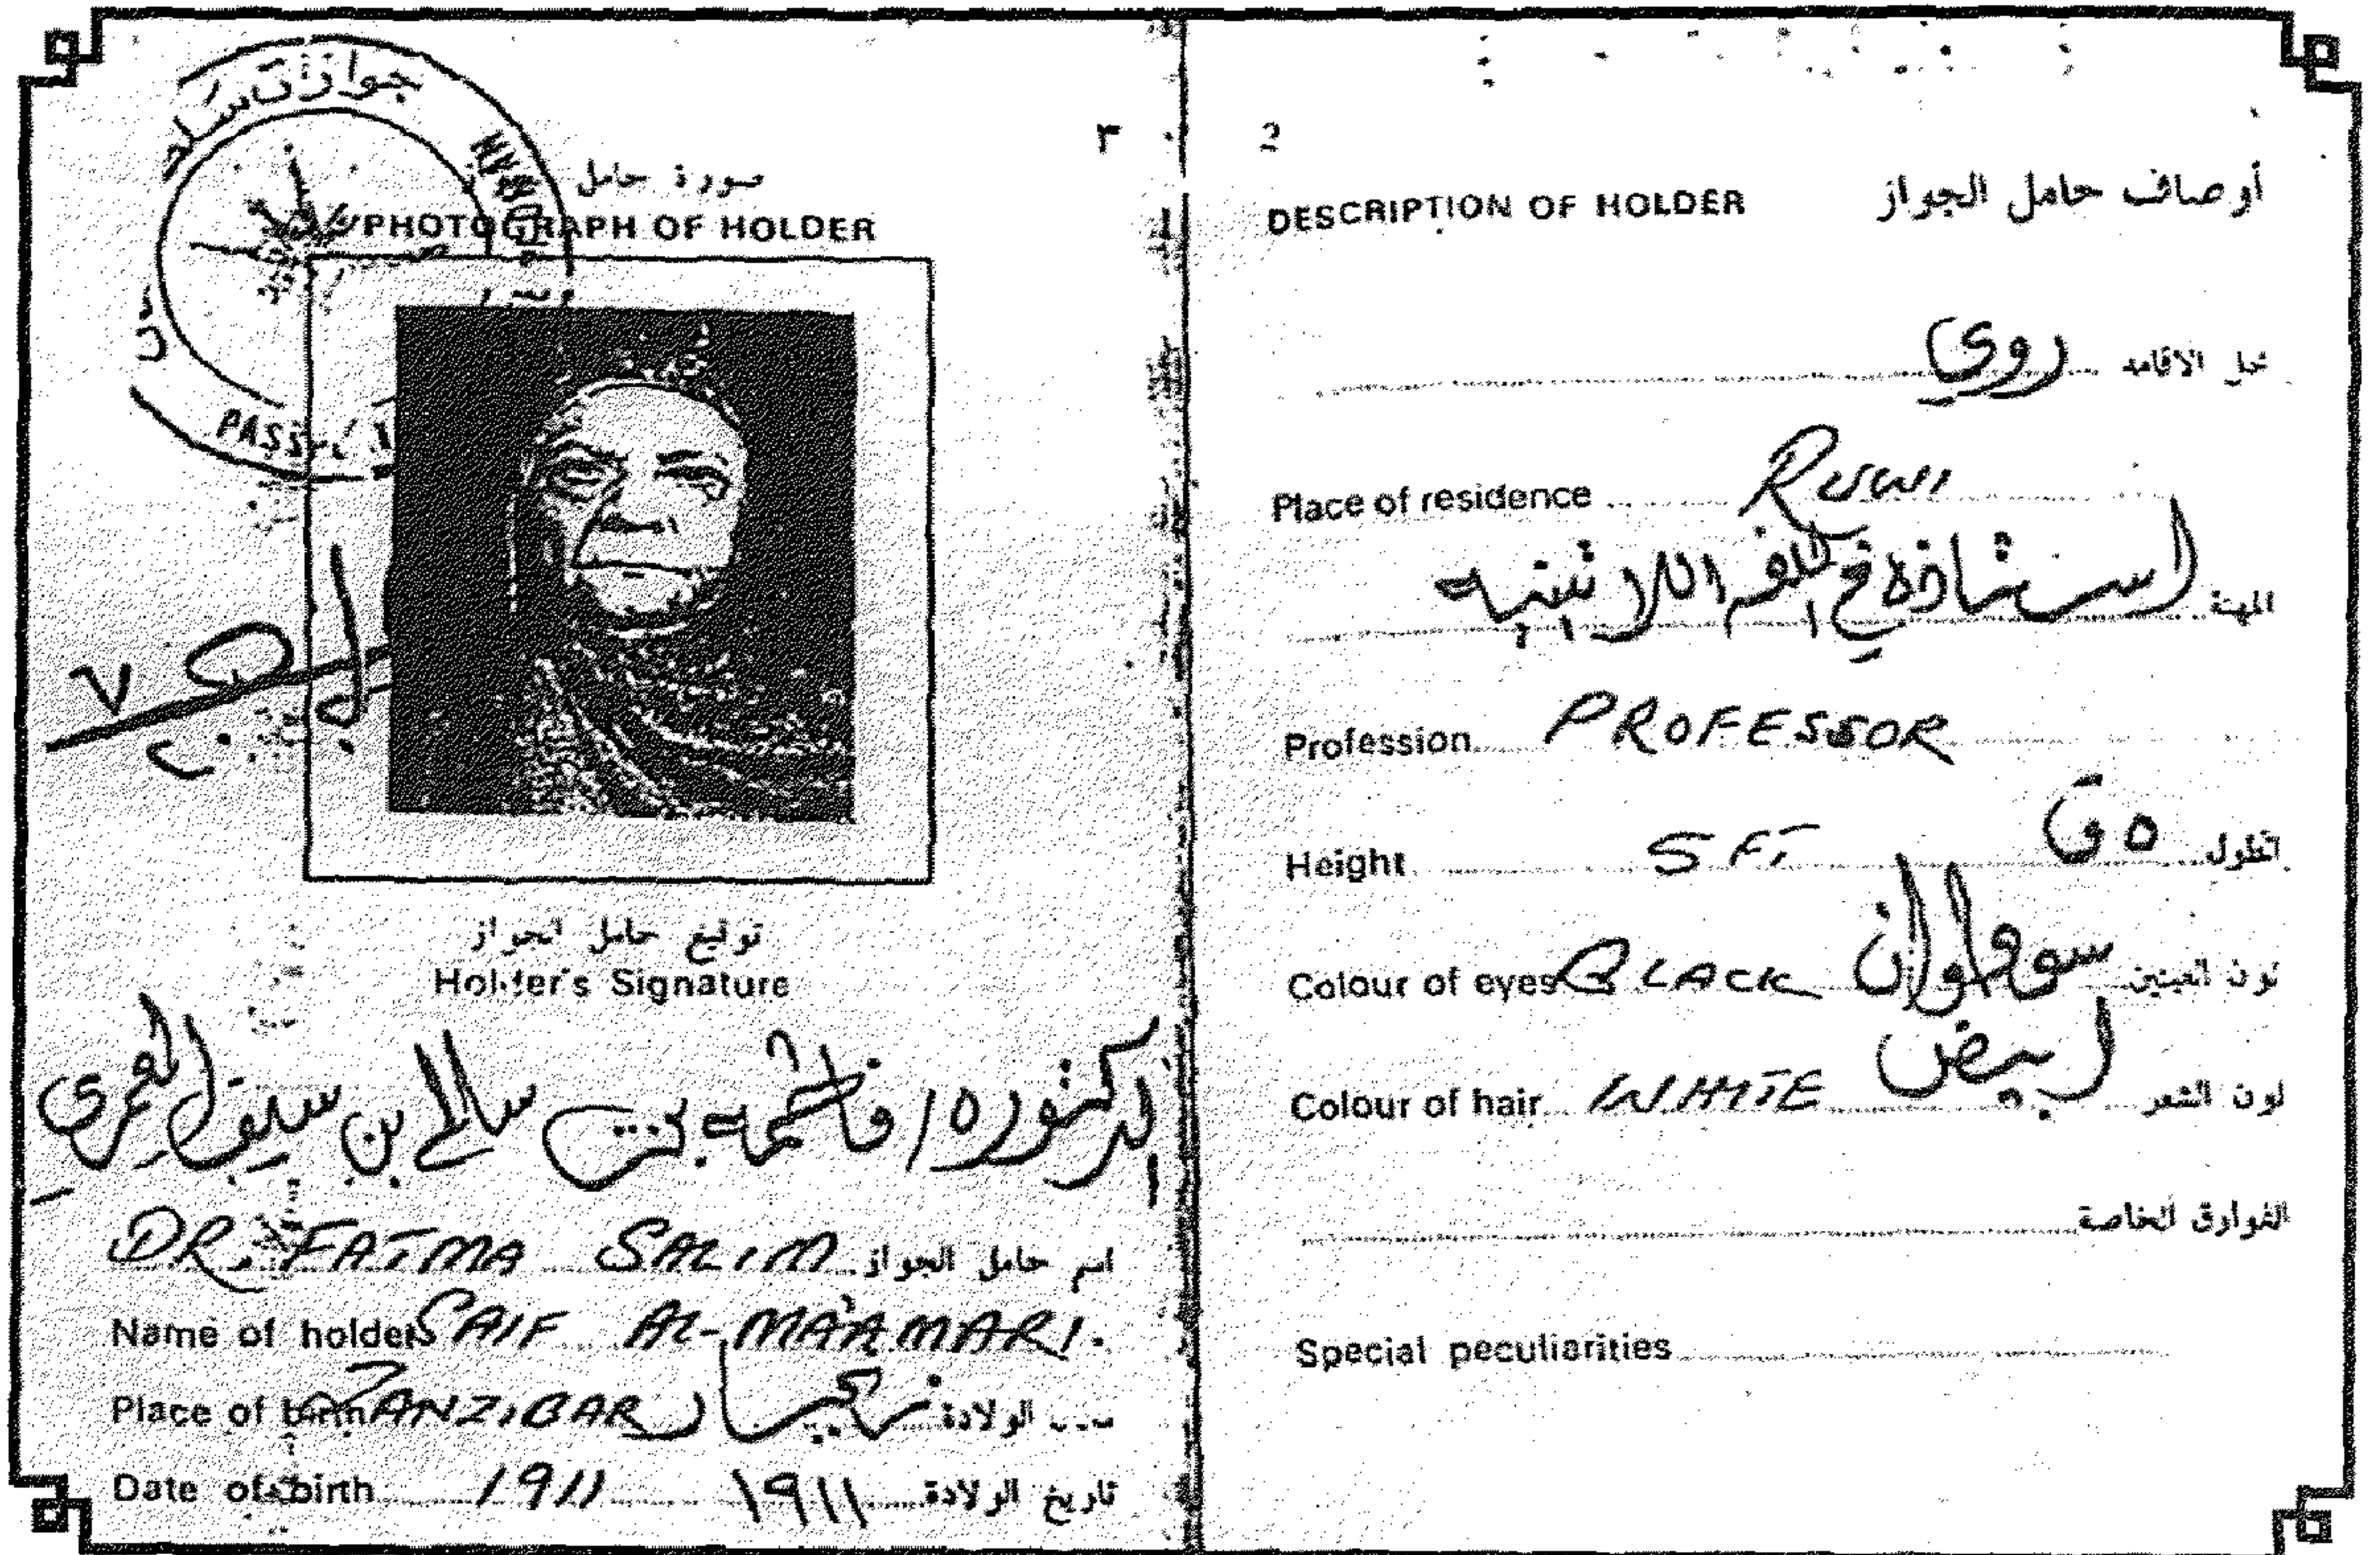 جوازات
PASS
٣
صورة حامل
PHOTOGRAPH OF HOLDER
توقيع حامل الجواز
Holder's Signature
الدكتوره / فاطمه بنت سالم بن سيف المعمري
DR. FATMA SALIM اسم حامل الجواز
Name of holder SAIF AL-MA'AMARI.
Place of birth ZANZIBAR زنجبار الولادة
Date of birth 1911 ١٩١١ تاريخ الولادة
2
DESCRIPTION OF HOLDER أوصاف حامل الجواز
محل الاقامه روي
Place of residence RUWI
المهنة استاذه في اللغه اللاتينيه
Profession PROFESSOR
Height 5 FT ٥ ق الطول
Colour of eyes BLACK سوداوان لون العينين
Colour of hair WHITE ابيض لون الشعر
الفوارق الخاصة
Special peculiarities